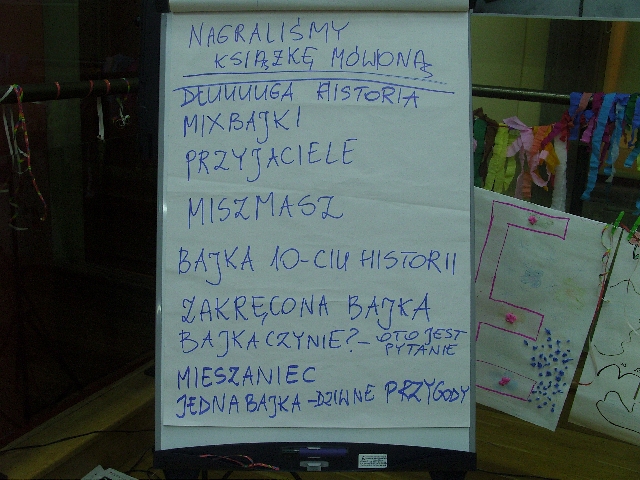 NAGRALIŚMY
KSIĄŻKĘ MÓWIONĄ
DŁUUUUGA HISTORIA
MIXBAJKI
PRZYJACIELE
MISZMASZ
BAJKA 10-CIU HISTORII
ZAKRĘCONA BAJKA
BAJKA CZY NIE? - OTO JEST
PYTANIE
MIESZANIEC
JEDNA BAJKA - DZIWNE PRZYGODY